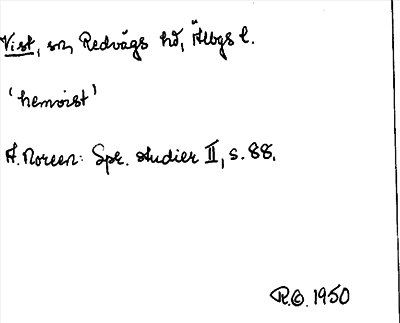 Vist, sn, Redvägs hd, Älvgs l.
'hemvist'
A. Noreen: Spr. studier II, s. 88.
R.G. 1950